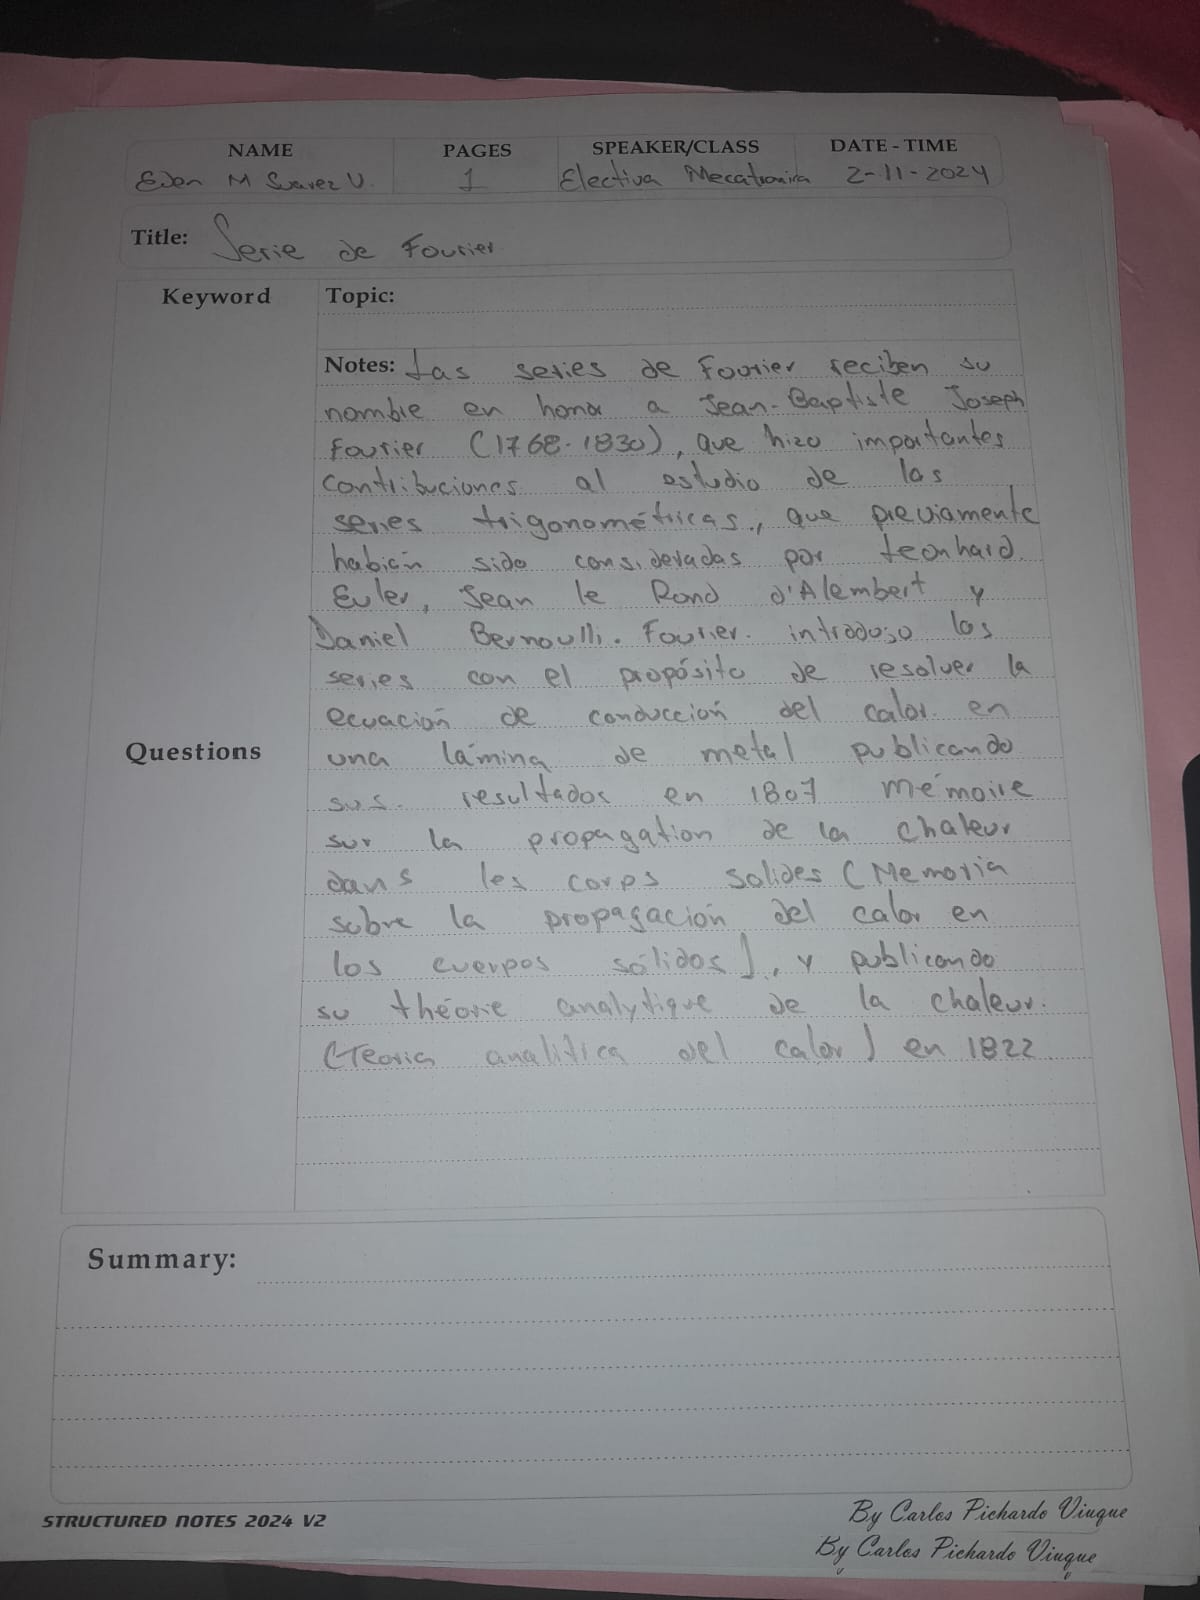 NAME PAGES SPEAKER/CLASS DATE - TIME
Eden M Suarez V. 1 Electiva Mecatronica 2-11-2024
Title: Serie de Fourier
Keyword Topic:
Notes: Las series de Fourier reciben su
nombre en honor a Jean-Baptiste Joseph
Fourier (1768-1830), que hizo importantes
contribuciones al estudio de las
series trigonométricas, que previamente
habían sido consideradas por Leonhard
Euler, Jean le Rond d'Alembert y
Daniel Bernoulli. Fourier introdujo las
series con el propósito de resolver la
ecuación de conducción del calor en
Questions una lámina de metal publicando
sus resultados en 1807 mémoire
sur la propagation de la chaleur
dans les corps solides (Memoria
sobre la propagación del calor en
los cuerpos sólidos), y publicando
su théorie analytique de la chaleur.
(Teoria analítica del calor) en 1822
Summary:
STRUCTURED NOTES 2024 V2
By Carlos Pichardo Viuque
By Carlos Pichardo Viuque